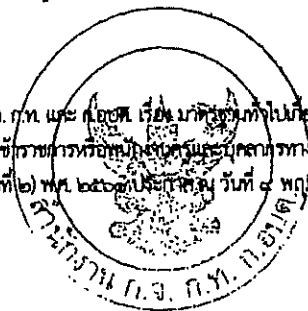 . ก.ท. และ ก.อบต. เรื่อง มาตรฐานทั่วไปเกี่
ข้าราชการหรือพนักงานครูและบุคลากรทาง
ที่ ๒) พ.ศ. ๒๕๖๑ ประกาศ ณ วันที่ ๙ พฤ
สำนักงาน ก.จ. ก.ท. ก.อบต.